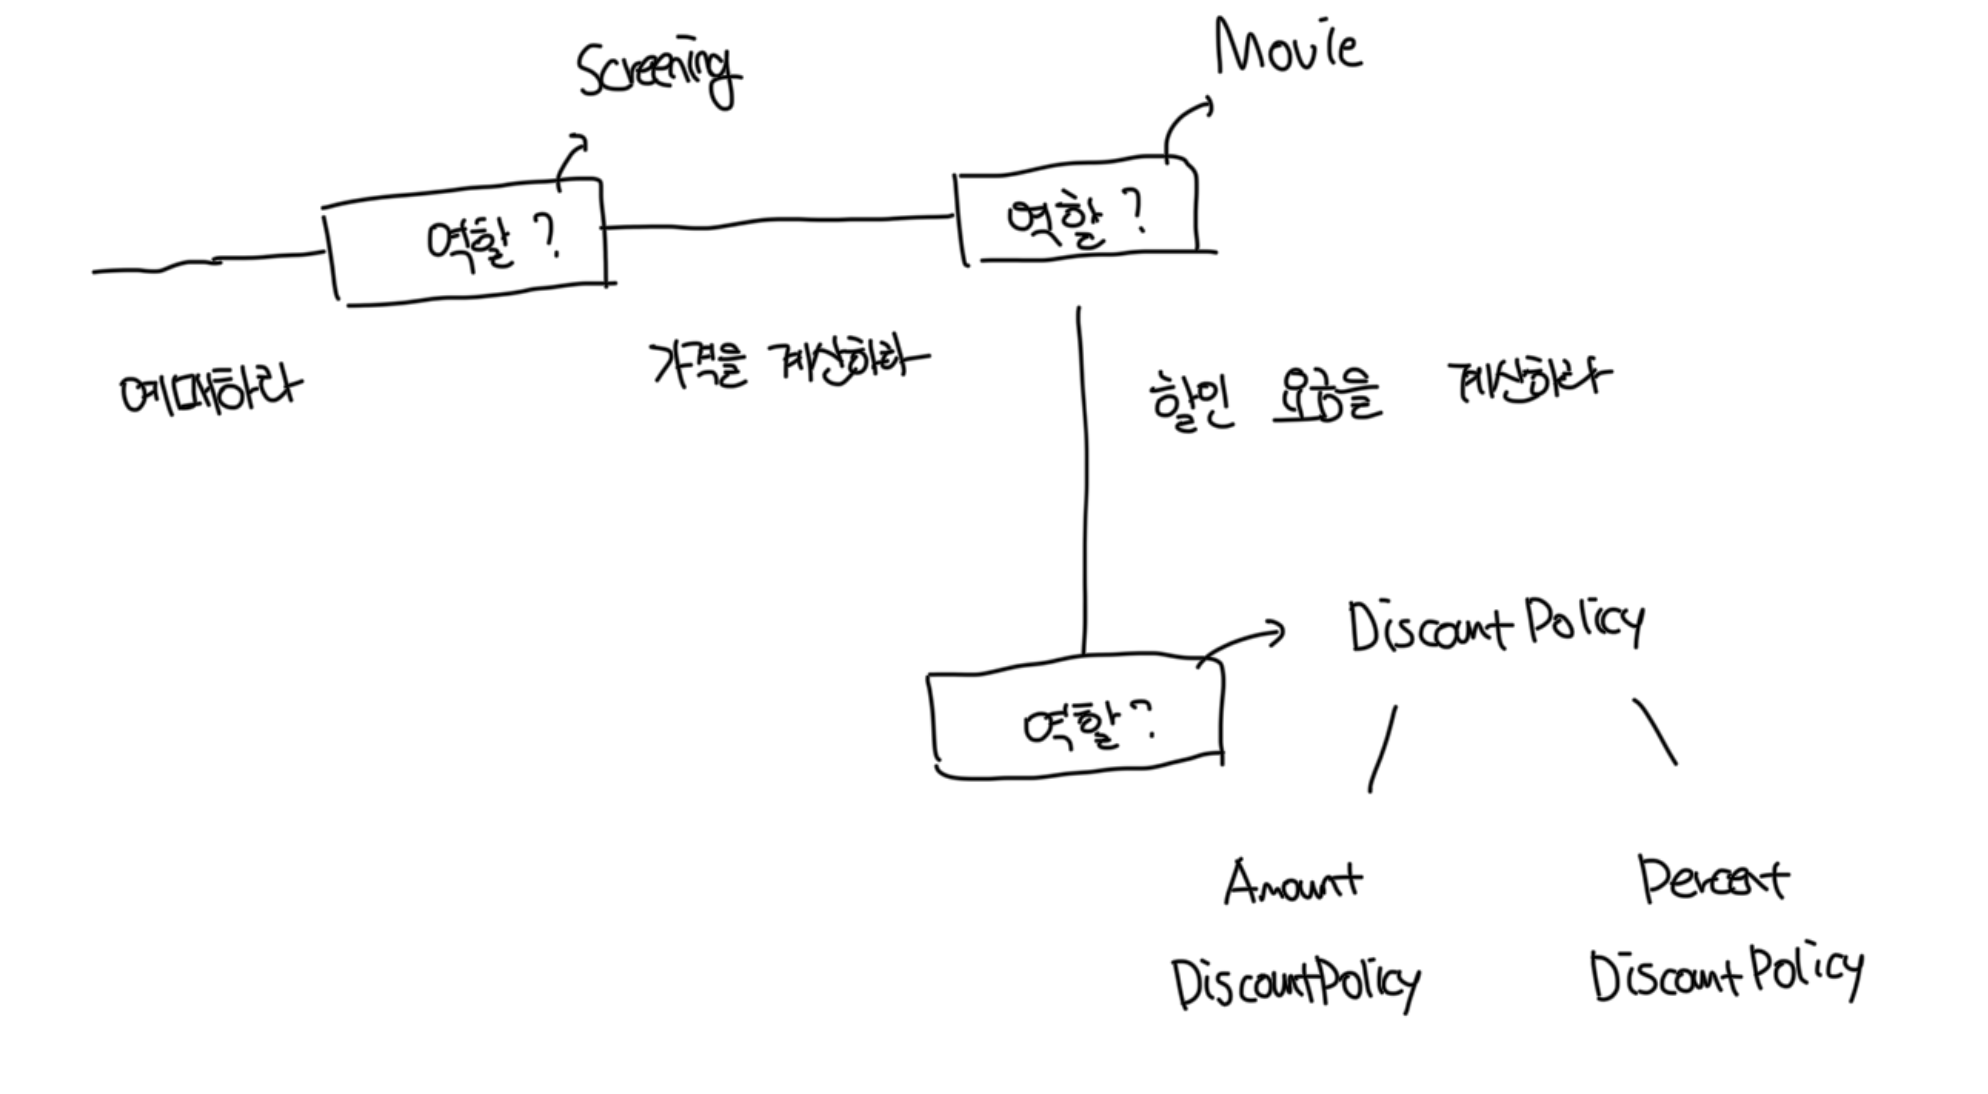 Screening
Movie
역할?
역할?
예매하라
가격을 계산하라
할인 요금을 계산하라
Discount Policy
역할?
Amount
DiscountPolicy
Percent
Discount Policy